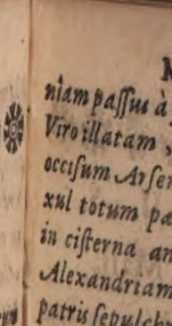 niam paſſus à
Viro illatam,
occiſum Arſen
xul totum pa
in ciſterna an
Alexandriam
patris ſepulchr